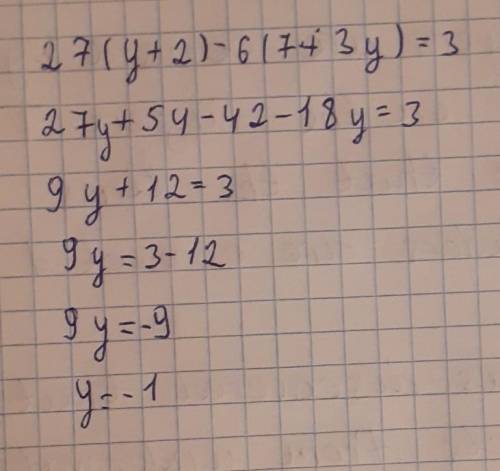 27(y+2)-6(7+3y)=3
27y+54-42-18y=3
9y+12=3
9y=3-12
9y=-9
y=-1